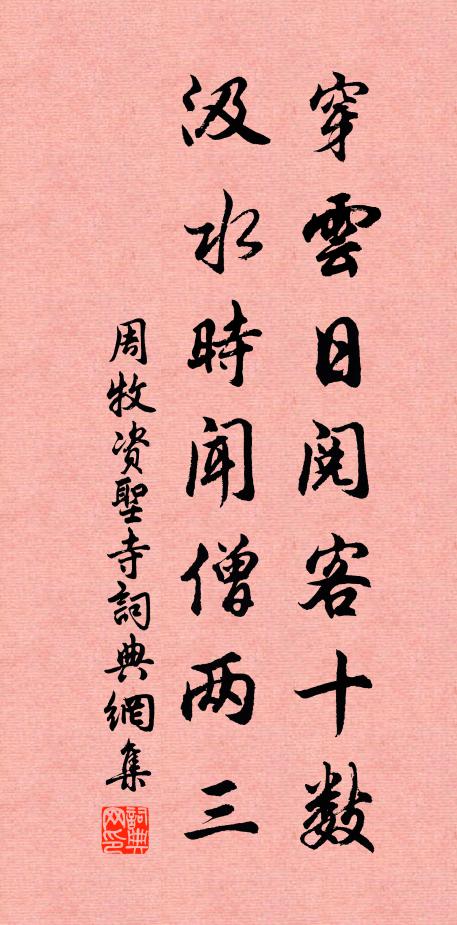 穿雲日閱客十數
汲水時闻僧两三
周牧资聖寺詞典網集
詞典网印